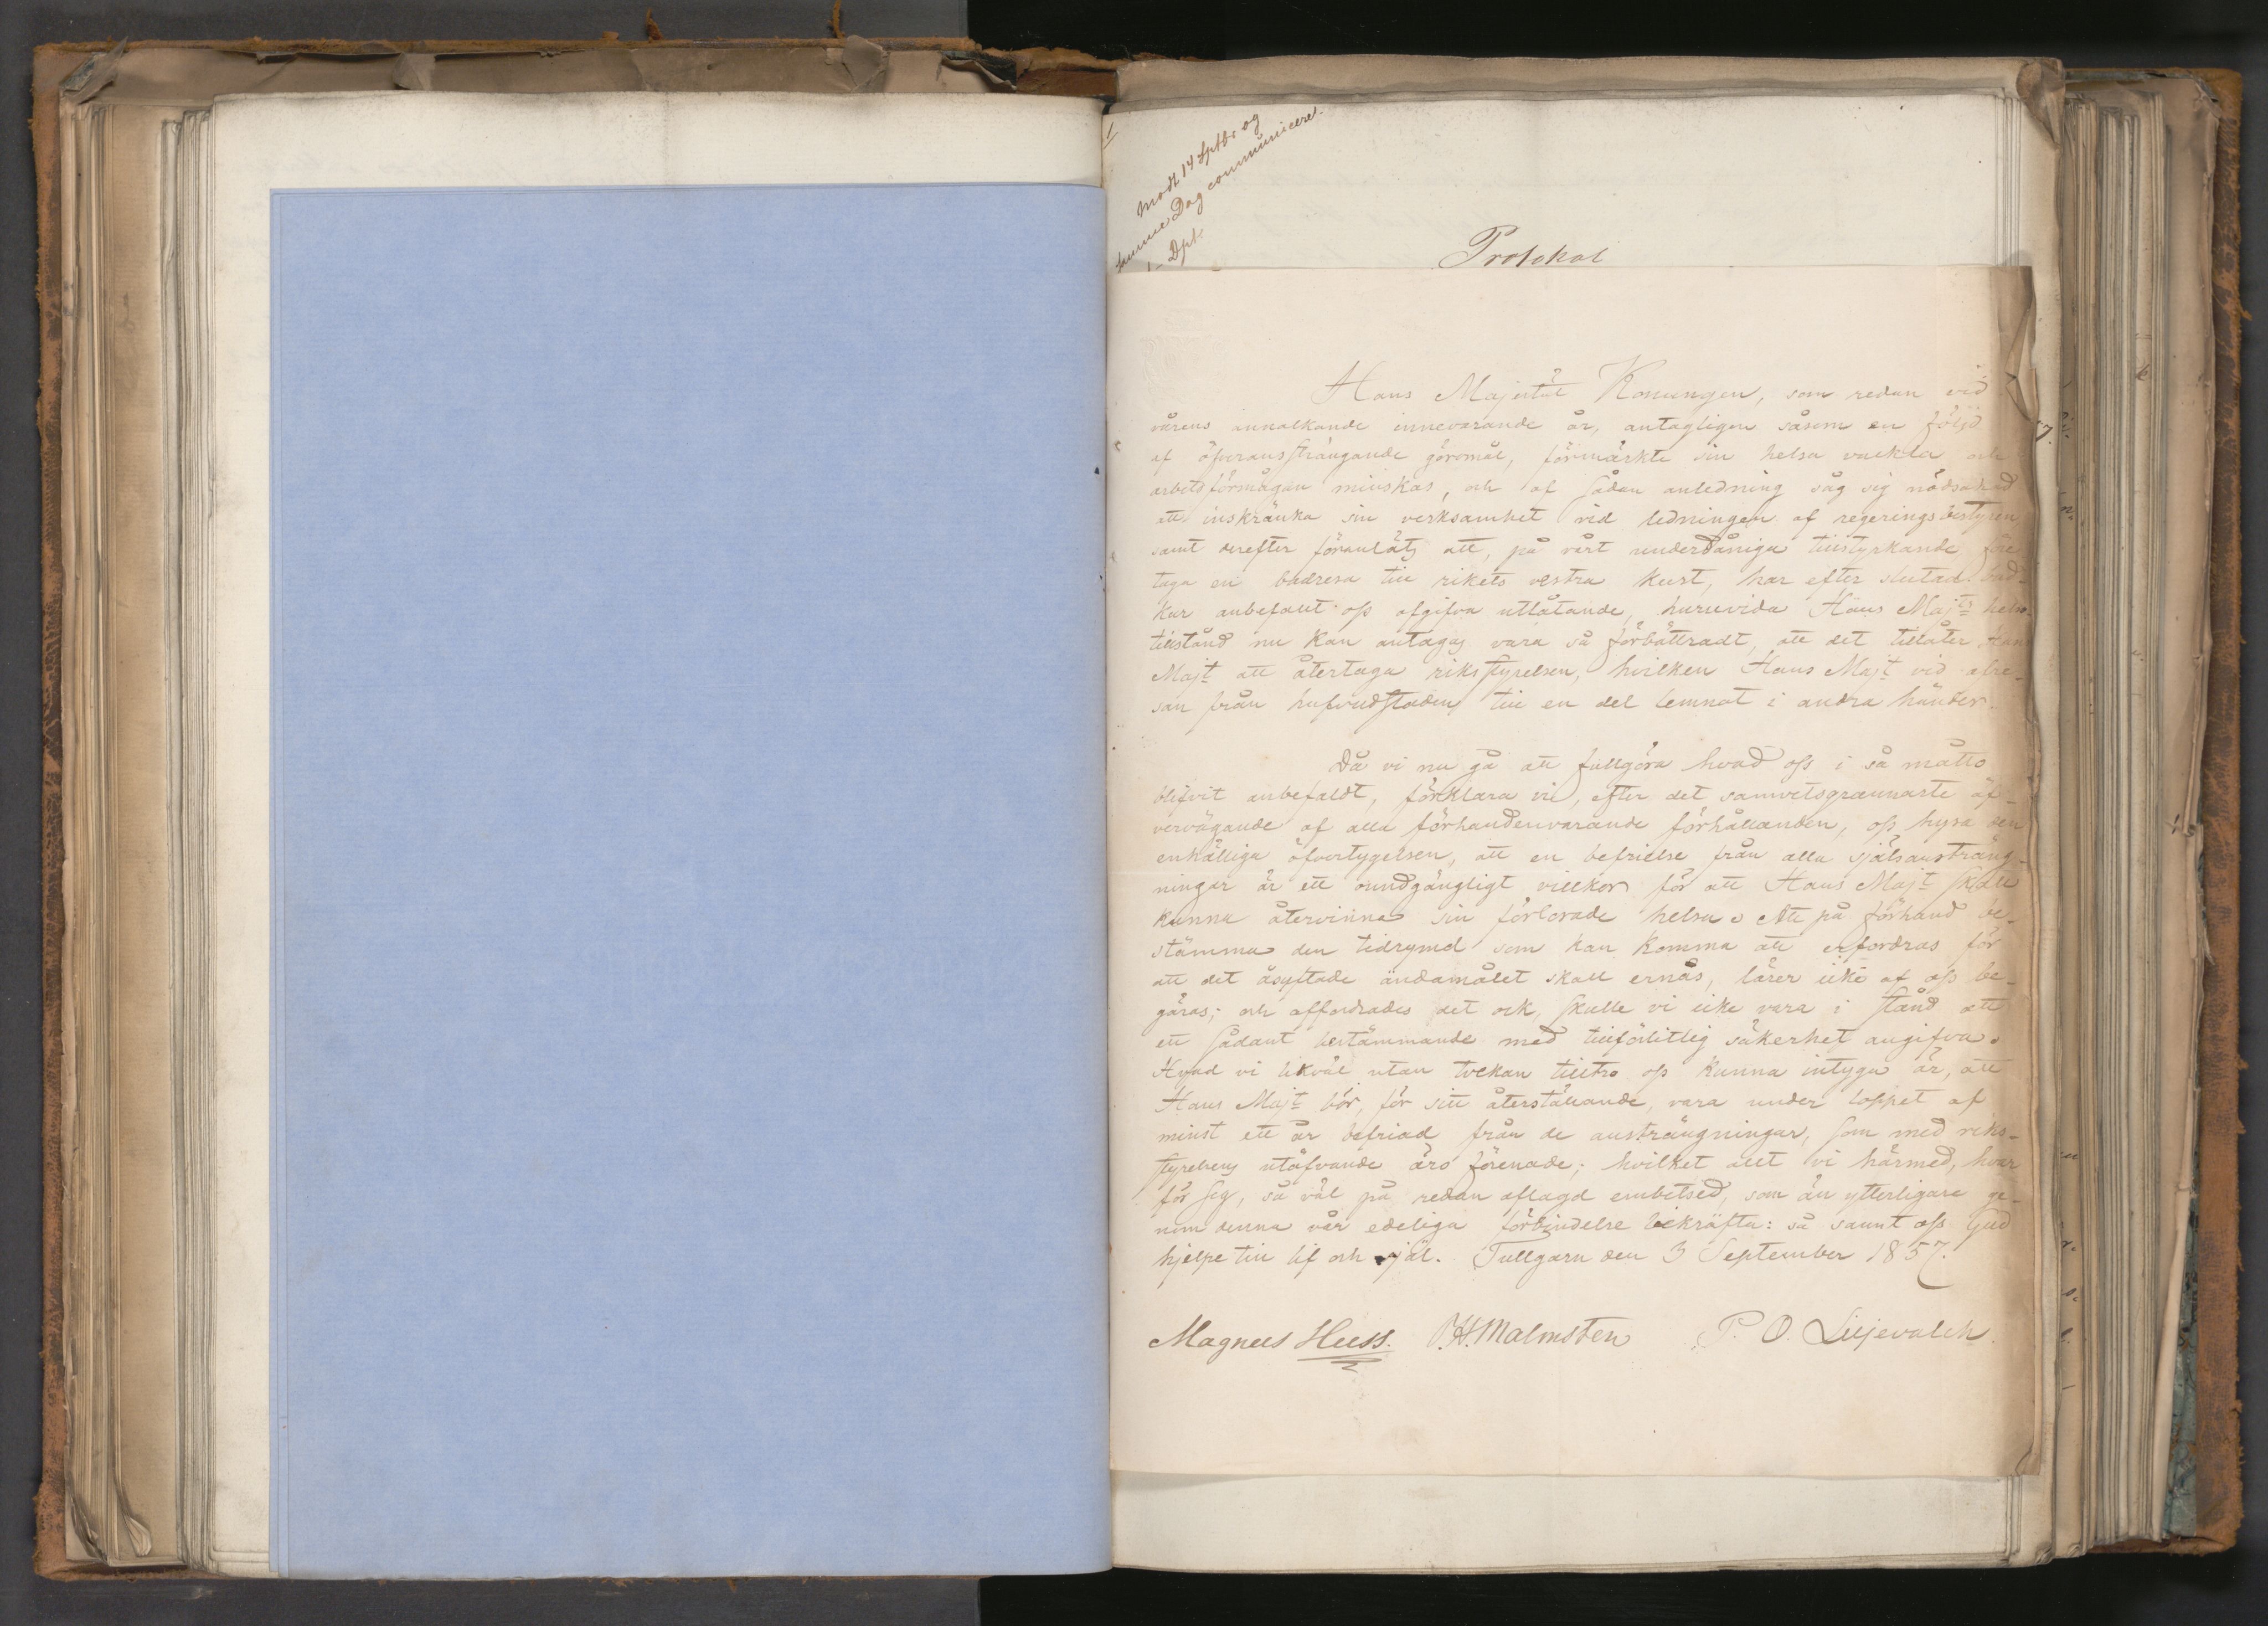 Modt 14 Septbr og
samme Dag communiceret
1 Dpt.
Protokol
Hans Majestät Konungen, som redan vid
vårens annalkande innevarande år, antagligen såsom en följd
af öfveransträngande göromål, förmärkte sin helsa vackla och
arbetsförmågan minskas, och af sådan anledning såg sig nödsakad
att inskränka sin verksamhet vid ledningen af regeringsbestyren
samt derefter föranläts att, på vårt underdåniga tillstyrkande före
taga en badresa till rikets vestra kust, har efter slutad bad-
kur anbefallt oss afgifva utlåtande, huruvida Hans Maj:ts helso-
tillstånd nu kan antagas vara så förbättradt, att det tillåter Hans
Maj:t att återtaga riksstyrelsen, hvilken Hans Maj:t vid afre-
san från hufvudstaden till en del lemnat i andra händer.
Då vi nu gå att fullgöra hvad oss i så måtto
blifvit anbefaldt, förklara vi, efter det samvetsgrannaste öf-
vervägande af alla förhandenvarande förhållanden, oss hysa den
enhälliga öfvertygelsen, att en befrielse från alla själsansträng-
ningar är ett oundgängligt villkor för att Hans Maj:t skall
kunna återvinna sin förlorade helsa. Att på förhand be-
stämma den tidrymd som kan komma att erfordras för
att det åsyftade ändamålet skall ernås, lärer icke af oss be-
gäras; och affordrades det ock, skulle vi icke vara i stånd att
ett sådant bestämmande med tillförlitlig säkerhet angifva.
Hvad vi likväl utan tvekan tilltro oss kunna intyga är, att
Hans Maj:t bör, för sitt återställande, vara under loppet af
minst ett år befriad från de ansträngningar, som med riks-
styrelsens utöfvande äro förenade; hvilket allt vi härmed, hvar
för sig, så väl på redan aflagd embetsed, som än ytterligare ge-
nom denna vår edeliga förbindelse bekräfta: så sannt oss Gud
hjelpe till lif och själ. Tullgarn den 3 September 1857.
Magnus Huss. P.H. Malmsten P. O. Liljevalch.